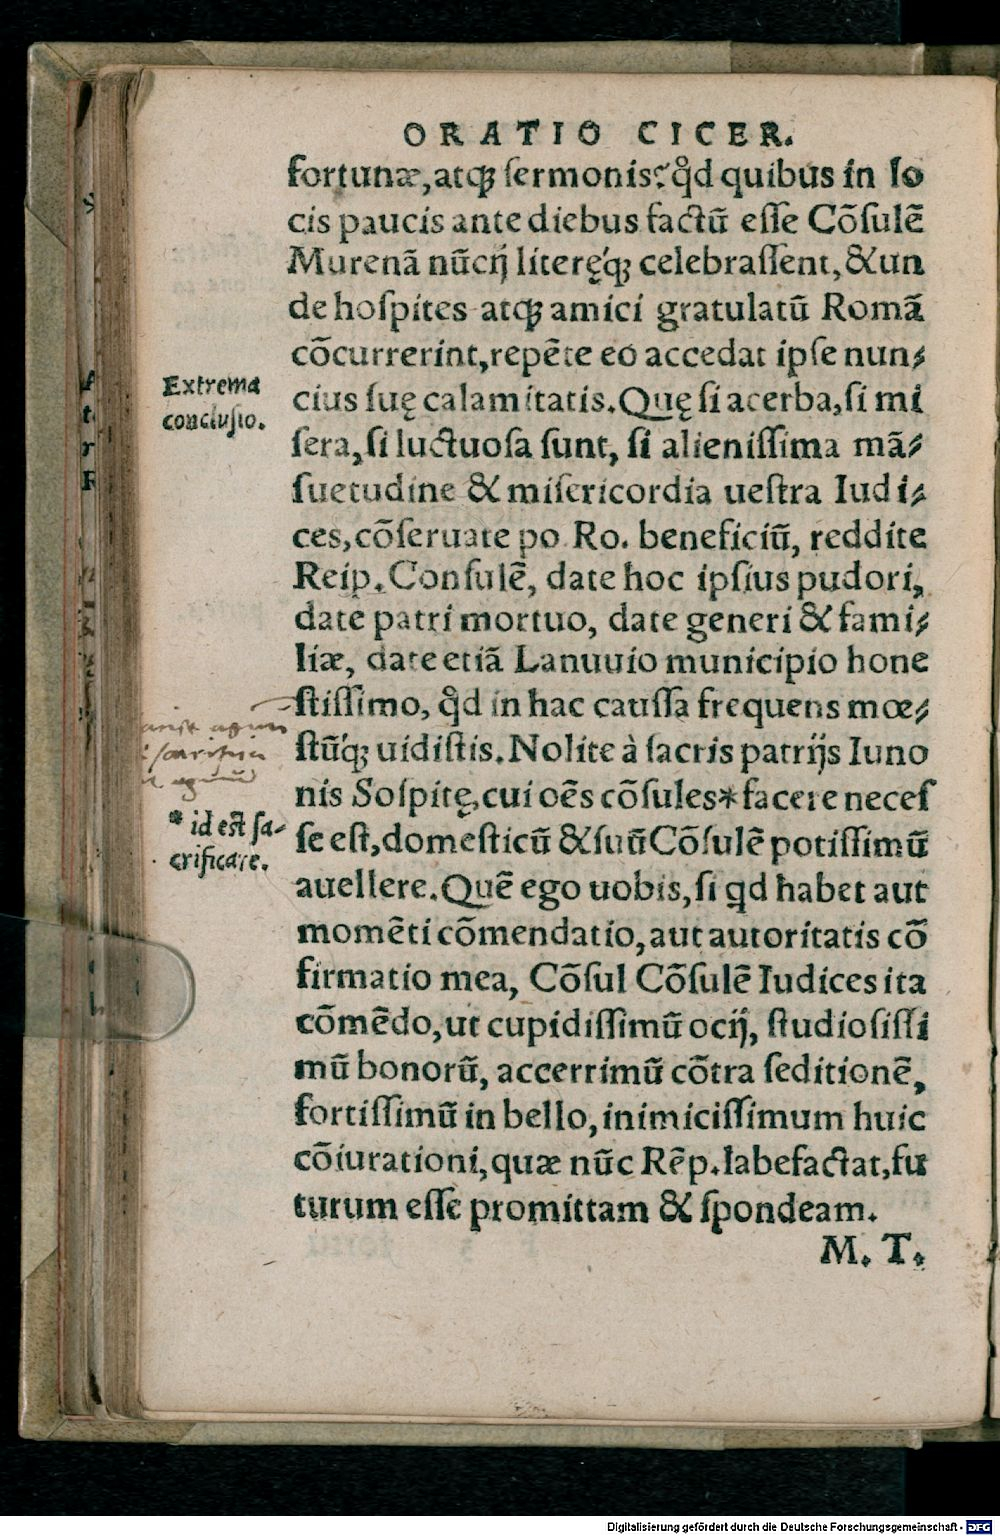 ORATIO CICER.
fortunæ, atqꝫ ſermonis? qd̊ quibus in lo
cis paucis ante diebus factũ eſſe Cõſulẽ
Murenã nũcij literęq́ꝫ celebraſſent, & un
de hoſpites atqꝫ amici gratulatũ Romã
cõcurrerint, repẽte eo accedat ipſe nun⸗
cius ſuę calamitatis. Quę ſi acerba, ſi mi
ſera, ſi luctuoſa ſunt, ſi alieniſſima mã⸗
ſuetudine & miſericordia ueſtra Iudi⸗
ces, cõſeruate po. Ro. beneficiũ, reddite
Reip. Conſulẽ, date hoc ipſius pudori,
date patri mortuo, date generi & fami⸗
liæ, date etiã Lanuuio municipio hone
ſtiſſimo, qd̊ in hac cauſſa frequens mœ⸗
ſtũq́ꝫ uidiſtis. Nolite à ſacris patrijs Iuno
nis Soſpitę, cui oẽs cõſules * facere neceſ
ſe eſt, domeſticũ & ſuũ Cõſulẽ potiſſimũ
auellere. Quẽ ego uobis, ſi qd habet aut
momẽti cõmendatio, aut autoritatis cõ
firmatio mea, Cõſul Cõſulẽ Iudices ita
cõmẽdo, ut cupidiſſimũ ocij, ſtudioſiſſi
mũ bonorũ, accerrimũ cõtra ſeditionẽ,
fortiſſimũ in bello, inimiciſſimum huic
cõiurationi, quæ nũc Rẽp. labefactat, fu
turum eſſe promittam & ſpondeam.
M. T.
Extrema
concluſio.
* id eſt ſa-
crificare.
Digitalisierung gefördert durch die Deutsche Forschungsgemeinschaft - DFG